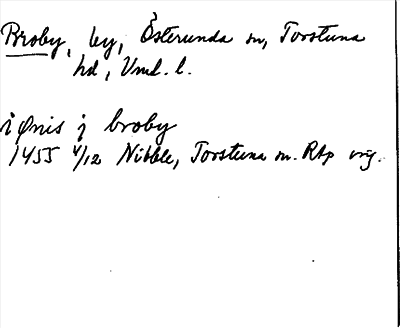 Broby, by, Österunda sn, Torstuna
hd, Vml. l.
i Ønis j broby
1455 4/12 Nibble, Torstuna sn. RAp orig.